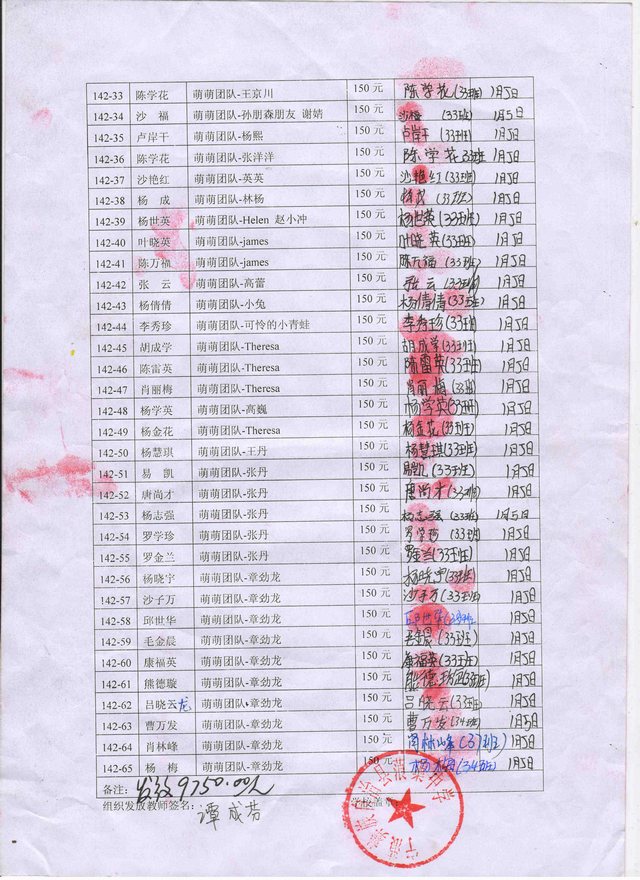 142-33 陈学花 萌萌团队-王京川 150 元 陈学花(33班) 1月5日
142-34 沙 福 萌萌团队-孙朋森朋友 谢婧 150 元 沙福 (33班) 1月5日
142-35 卢岸干 萌萌团队-杨熙 150 元 卢岸干(33班) 1月5日
142-36 陈学花 萌萌团队-张洋洋 150 元 陈学花 33班 1月5日
142-37 沙艳红 萌萌团队-英英 150 元 沙艳红(33班) 1月5日
142-38 杨 成 萌萌团队-林杨 150 元 杨成 (33班) 1月5日
142-39 杨世英 萌萌团队-Helen 赵小冲 150 元 杨世英(33班) 1月5日
142-40 叶晓英 萌萌团队-james 150 元 叶晓英(33班) 1月5日
142-41 陈万福 萌萌团队-james 150 元 陈万福(33班) 1月5日
142-42 张 云 萌萌团队-高蕾 150 元 张云(33班) 1月5日
142-43 杨倩倩 萌萌团队-小兔 150 元 杨倩倩(33班) 1月5日
142-44 李秀珍 萌萌团队-可怜的小青蛙 150 元 李秀珍(33班) 1月5日
142-45 胡成学 萌萌团队-Theresa 150 元 胡成学(33班) 1月5日
142-46 陈雷英 萌萌团队-Theresa 150 元 陈雷英(33班) 1月5日
142-47 肖丽梅 萌萌团队-Theresa 150 元 肖丽梅(33班) 1月5日
142-48 杨学英 萌萌团队-高巍 150 元 杨学英(33班) 1月5日
142-49 杨金花 萌萌团队-Theresa 150 元 杨金花(33班) 1月5日
142-50 杨慧琪 萌萌团队-王丹 150 元 杨慧琪(33班) 1月5日
142-51 易 凯 萌萌团队-张丹 150 元 易凯(33班) 1月5日
142-52 唐尚才 萌萌团队-张丹 150 元 唐尚才(33班) 1月5日
142-53 杨志强 萌萌团队-张丹 150 元 杨志强(33班) 1月5日
142-54 罗学珍 萌萌团队-张丹 150 元 罗学珍(33班) 1月5日
142-55 罗金兰 萌萌团队-张丹 150 元 罗金兰(33班) 1月5日
142-56 杨晓宇 萌萌团队-章劲龙 150 元 杨晓宇(33班) 1月5日
142-57 沙子万 萌萌团队-章劲龙 150 元 沙子万(33班) 1月5日
142-58 邱世华 萌萌团队-章劲龙 150 元 邱世华(33班 1月5日
142-59 毛金晨 萌萌团队-章劲龙 150 元 毛金晨(33班) 1月5日
142-60 康福英 萌萌团队-章劲龙 150 元 康福英(33班) 1月5日
142-61 熊德璇 萌萌团队-章劲龙 150 元 熊德璇(33班) 1月5日
142-62 吕晓云龙 萌萌团队-章劲龙 150 元 吕晓云(33班) 1月5日
142-63 曹万发 萌萌团队-章劲龙 150 元 曹万发(34班) 1月5日
142-64 肖林峰 萌萌团队-章劲龙 150 元 肖林峰(37班) 1月5日
142-65 杨 梅 萌萌团队-章劲龙 150 元 杨梅(34班) 1月5日
备注: 9750.00元
组织发放教师签名: 谭成芬 学校盖章:
宁蒗彝族自治县